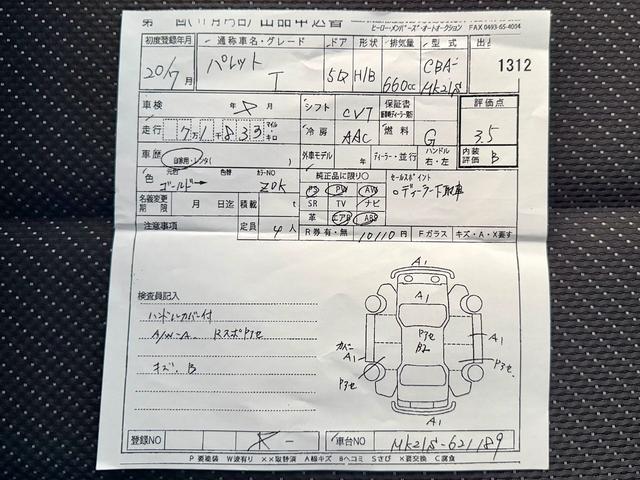 出品申込書
ヒーロー・メンバーズ・オートオークション FAX 0493-65-4004
初度登録年月 通称車名・グレード ドア 形状 排気量 型式 出
20/7月 パレット T 5D H/B 660cc CBA-MK21S 1312
車検 年 月 シフト CVT 保証書 評価点
走行 7万1千833 マイル・キロ 冷房 AAC 燃料 G 3.5
車歴 自家用・レンタ( ) 外車モデル 年 ディーラー・並行 ハンドル 右・左 内装評価 B
色 元色 ゴールド 色替 カラーNO ZDK 純正品に限り〇 セールスポイント
PS PW AW 〇ディーラー下取車
名義変更期限 月 日迄 積載 t SR TV ナビ
革 エアB ABS
注意事項 定員 4人 R券 有・無 10110円 Fガラス キズ・A・X要す
検査員記入
ハンドルカバー付
A/W-A Rスポトアセ
キズ、B
A1
A1
トアセ
B2
カバー
A1
A1
トアセ
トアセ
A1
登録NO 車台NO MK21S-621189
P要塗装 W波有り ××取替済 A線キズ Bヘコミ Sさび ×要交換 C腐食